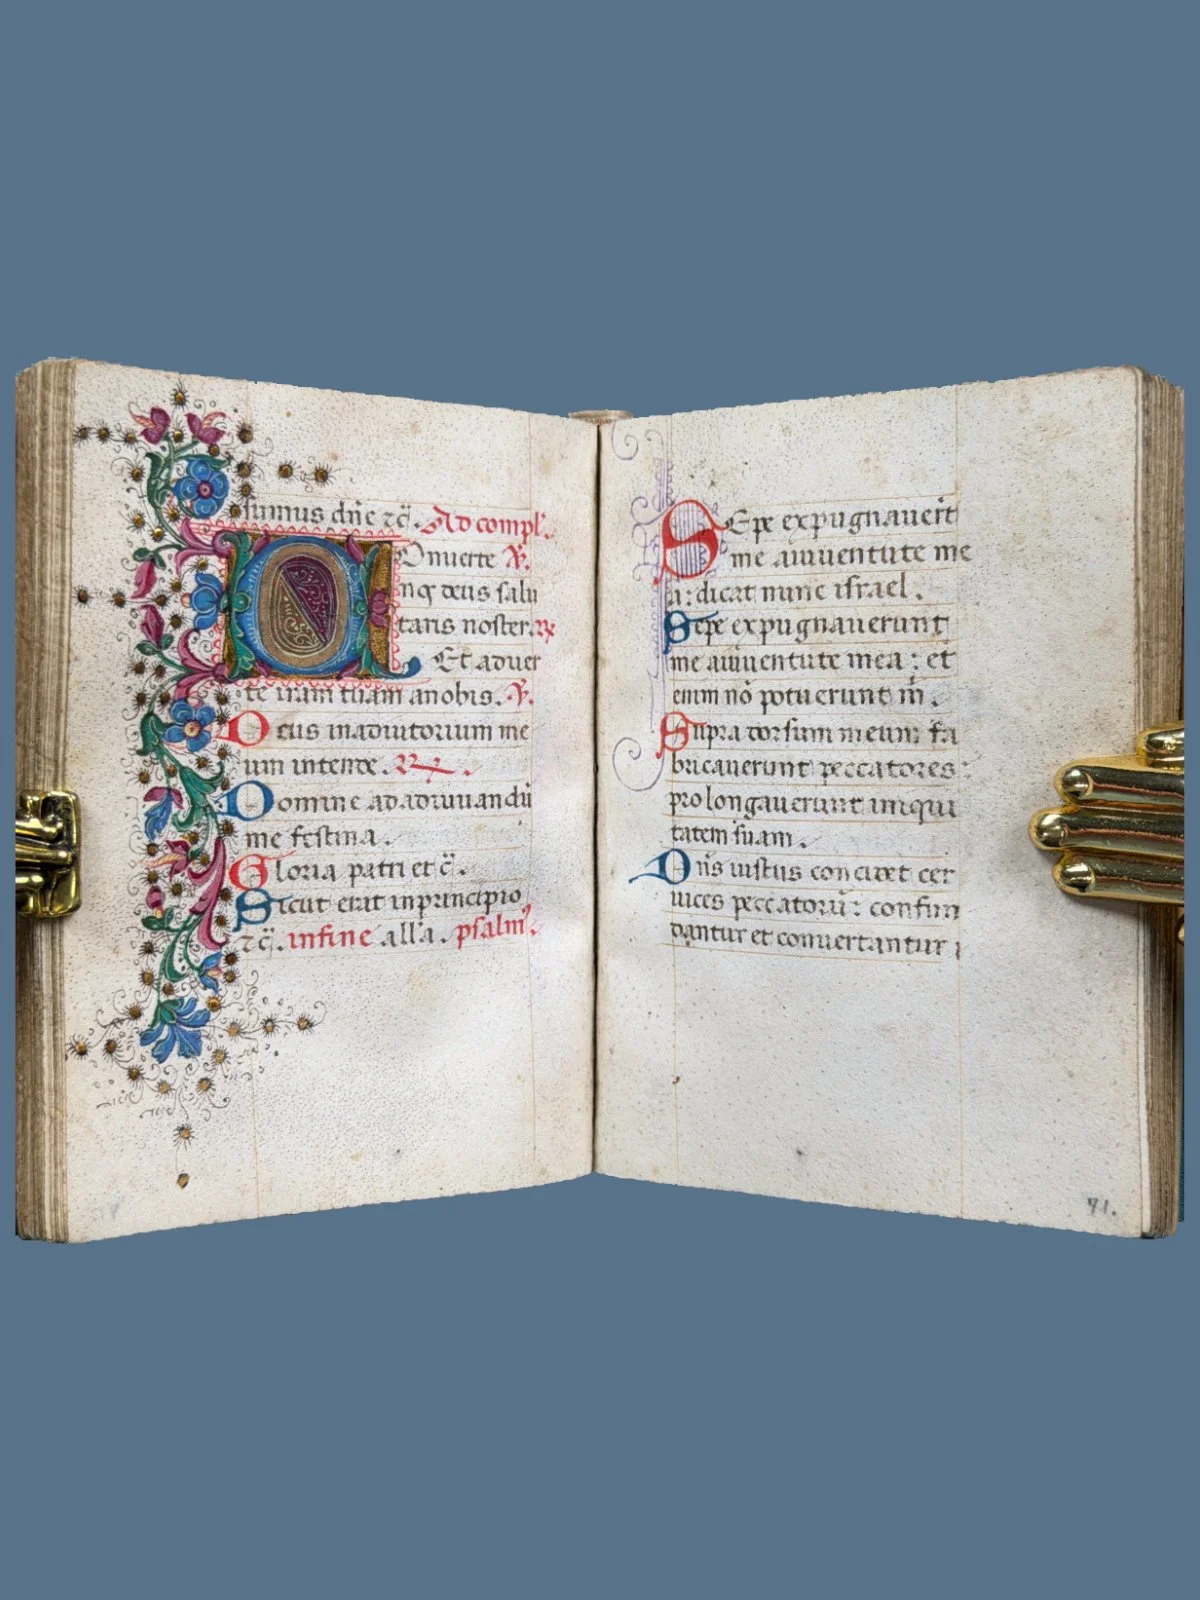 sumus dn̄e ⁊c̄. Ad compl'.
Onuerte ℣.
nos deus salu
taris noster. ℟
Et aduer
te iram tuam anobis. ℣.
Deus inadiutorium me
um intende. ℟.
Domine adadiuuandū
me festina.
Gloria patri et c̄.
Sicut erat inprincipio
⁊c̄. infine all'a. psalm'.
SEpe expugnauerūt
me aiuuentute me
a: dicat nunc israel.
Sepe expugnauerunt
me aiuuentute mea: et
enim nō potuerunt m̄.
Supra dorsum meum fa
bricauerunt peccatores:
prolongauerunt iniqui
tatem suam.
Dn̄s iustus concidet cer
uices peccatorū: confun
dantur et conuertantur
71.